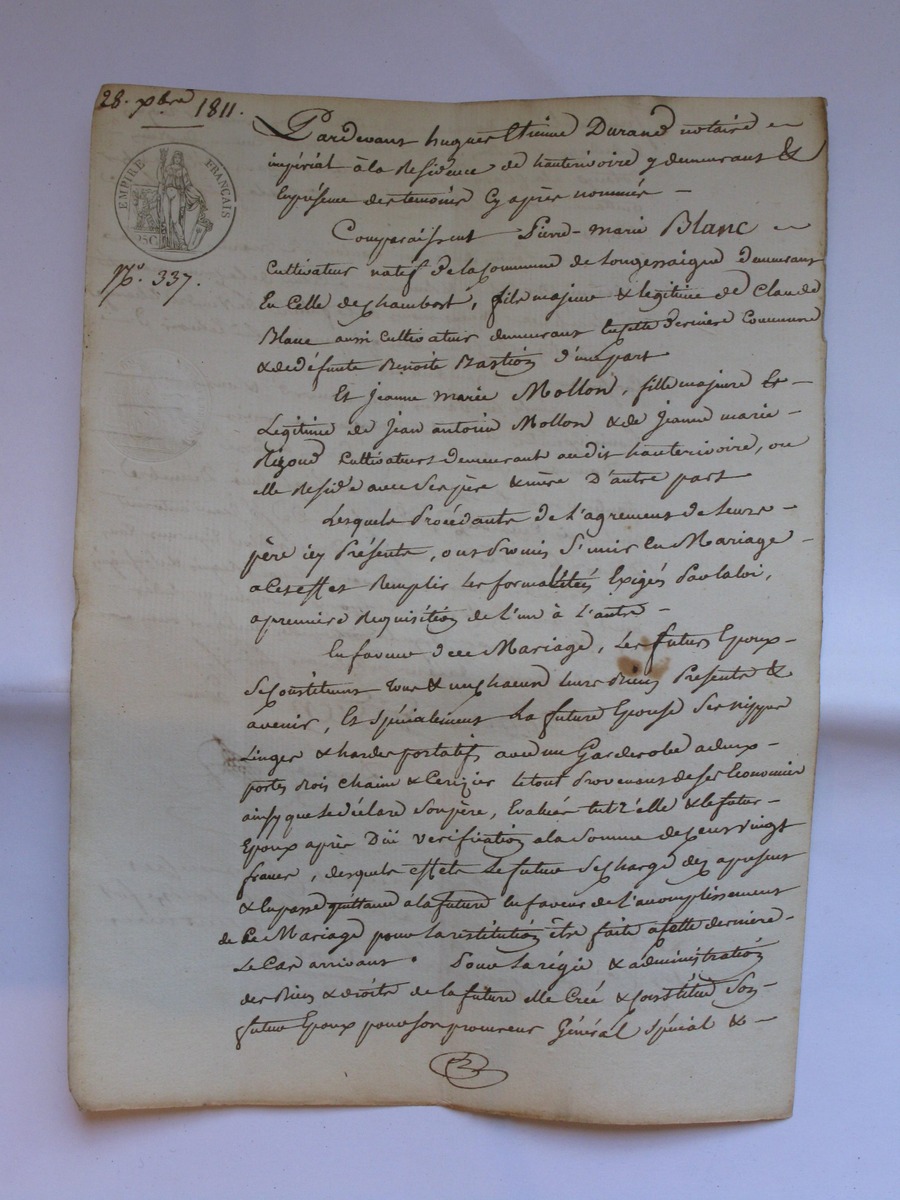 28. xbre 1811.
EMPIRE FRANÇAIS
25C
No. 337.
Pardevant hugues Etienne Durand notaire
impérial à la Residence de hauterivoire y demeurant &
En présence des temoins Cy après nommés —
Comparaissent Pierre-marie Blanc
Cultivateur natif de la Commune de Longessaigne demeurant
En Celle de Chambost, fils majeur & legitime de Claude
Blanc aussi cultivateur demeurant En cette derniere Commune
& de défunte Benoite Bastion d'une part
Et Jeanne marie Mollon, fille majeure Et —
Legitime de Jean antoine Mollon & de Jeanne marie —
Cultivateurs demeurant audit hauterivoire, ou
elle Reside avec Ses père & mère D'autre part
Lesquels Procédants de L'agrement de Leurs —
père icy Présents, ont Promis S'unir En Mariage —
a Cet effet Remplir Les formalités Exigés Par la loi,
a premiere Requisition de L'un à L'autre —
En faveur de Ce Mariage, Les futurs Epoux —
Se Constituent tous & un chacun Leurs Biens Presents &
avenir, Et Spécialement La future Epouse Ses nippes
Linges & hardes portatifs avec une Garderobe a deux —
portes Bois Chaine & Cerizier Le tout Provenant de Ses Economies
ainsy que le déclare Son père, Evalués Entr'elle & le futur —
Epoux après Due verification a la Somme de Cent vingt
francs, desquels effets Le futur Se Charge des apresent
& En passe quittance a la future En faveur de L'accomplissement
de Ce Mariage pour La restitution être faite a cette derniere —
Le Cas arrivant. Pour La régie & administration
des Biens & droits de la future elle Créé & Constitue Son —
futur Epoux pour Son procureur Général Spécial & —